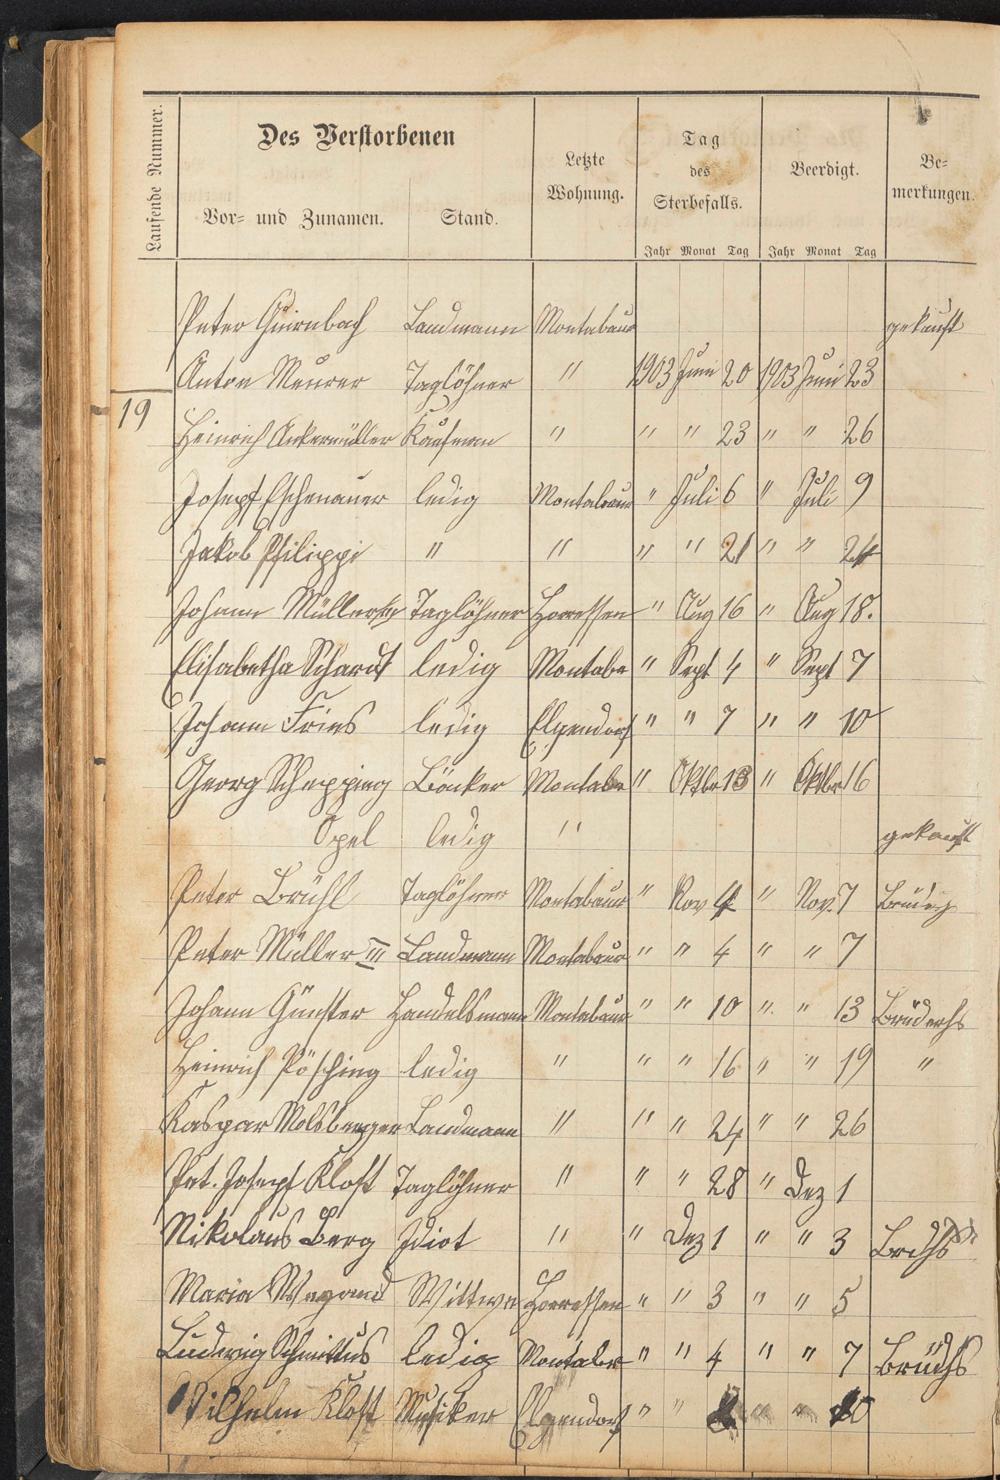 Laufende Nummer.
Des Verstorbenen
Vor- und Zunamen.
Stand.
Letzte
Wohnung.
Tag
des
Sterbefalls.
Jahr Monat Tag
Beerdigt.
Jahr Monat Tag
Be-
merkungen.
Peter Quirnbach Landmann Montabaur gekauft
Anton Meurer Taglöhner " 1903 Juni 20 1903 Juni 23
19
Heinrich Ankermüller Kaufmann " " " 23 " " 26
Josepf Eschenauer ledig Montabaur " Juli 6 " Juli 9
Jakob Philippi " " " " 21 " " 24
Johann Müller Taglöhner Horressen " Aug 16 " Aug 18.
Elisabetha Schardt ledig Montabr " Sept 4 " Sept 7
Johann Fries ledig Elgendorf " " 7 " " 10
Georg Schepping Bäcker Montabr " Oktbr 13 " Oktbr 16
Opel ledig " gekauft
Peter Brühl Taglöhner Montabaur " Nov 4 " Nov. 7
Peter Müller III Landmann Montabaur " " 4 " " 7
Johann Günster Handelsmann Montabaur " " 10 " " 13 Brüderhs
Heinrich Pösching ledig " " " 16 " " 19 "
Kaspar Molsberger Landmann " " " 24 " " 26
Pet. Josepf Klost Taglöhner " " " 28 " Dez 1
Nikolaus Berg Idiot " " Dez 1 " " 3
Maria Wegand Wittwe Horressen " " 3 " " 5
Ludwig Schmittus ledig Montabr " " 4 " " 7 Brüdhs
Wilhelm Klost Musiker Elgendorf " " " " 10